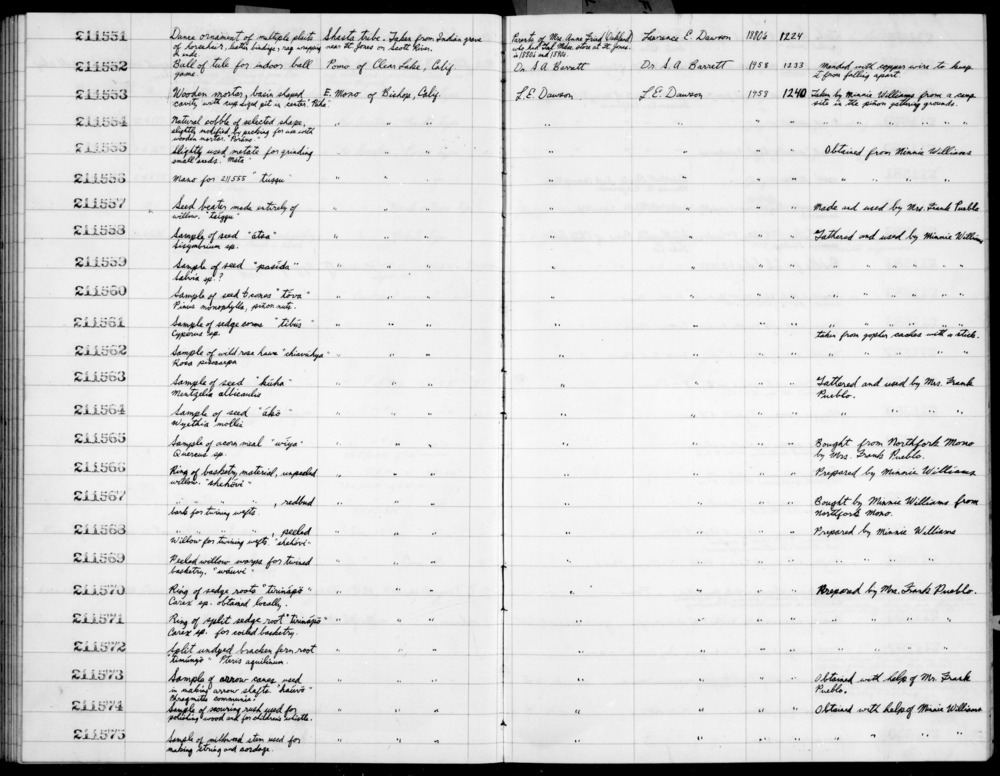 211551 Dance ornament of multiple plaits Shasta Tribe. Taken from Indian grave Parents of Mrs. Anna Fried Florence E. Dawson 1880s 1224
of horsehair, leather bindings, rag wrapping near Ft. Jones on Scott River. who had Gal. Mdse. store at Ft. Jones
in 1880s and 1890s.
211552 Ball of tule for indoor ball Pomo of Clear Lake, Calif. Dr. S.A. Barrett Dr. S.A. Barrett 1958 1233 Mended with copper wire to keep
game. it from falling apart.
211553 Wooden mortar, basin shaped E. Mono of Bishop, Calif. L.E. Dawson L.E. Dawson 1958 1240 Taken by Minnie Williams from a camp
cavity with cup sized pit in center. site in the piñon gathering grounds.
211554 Natural cobble of selected shape, " " " " " " " " " " "
slightly modified by pecking for use with
wooden mortar.
211555 Slightly used metate for grinding " " " " " " " Obtained from Minnie Williams
small seeds. "Mata"
211556 Mano for 211555 "tusu" " " " " " " " " " "
211557 Seed beater made entirely of " " " " " " " Made and used by Mrs. Frank Pueblo
willow.
211558 Sample of seed "atsa" " " " " " " " Gathered and used by Minnie Williams
Sisymbrium sp.
211559 Sample of seed "pasida" " " " " " " " " " " " "
Salvia sp.?
211560 Sample of seed & cones "tova" " " " " " " " " " " " "
Pinus monophylla, piñon nuts.
211561 Sample of sedge corms "tibus" " " " " " " " " " " " "
Cyperus sp. taken from gopher caches with a stick.
211562 Sample of wild rose haws " " " " " " " " " "
Rosa pisocarpa
211563 Sample of seed "kuha" " " " " " " " Gathered and used by Mrs. Frank
Mentzelia albicaulis Pueblo.
211564 Sample of seed "ako" " " " " " " " " " " "
Wyethia mollis
211565 Sample of acorn meal "wiya" " " " " " " " Bought from Northfork Mono
Quercus sp. by Mrs. Frank Pueblo.
211566 Ring of basketry material, unpeeled " " " " " " " Prepared by Minnie Williams
willow. "shehövi"
211567 " " " " , redbud " " " " " " " Bought by Minnie Williams from
bark for twining wefts Northfork Mono.
211568 " " " " , peeled " " " " " " " Prepared by Minnie Williams
Willow for twining wefts "shehövi"
211569 Peeled willow warps for twined " " " " " " " " " "
basketry.
211570 Ring of sedge roots "tinapö" " " " " " " " Prepared by Mrs. Frank Pueblo.
Carex sp. obtained locally.
211571 Ring of split sedge root " " " " " " " " " " "
Carex sp. for coiled basketry.
211572 Split undyed bracken fern root " " " " " " " " " "
Pteris aquilinum.
211573 Sample of arrow canes used " " " " " " " Obtained with help of Mr. Frank
in making arrow shafts Pueblo.
Phragmites communis.
211574 Sample of scouring rush used for " " " " " " " Obtained with help of Minnie Williams
polishing wood and for childrens whistle.
211575 Sample of milkweed stem used for " " " " " " " " " " "
making string and cordage.